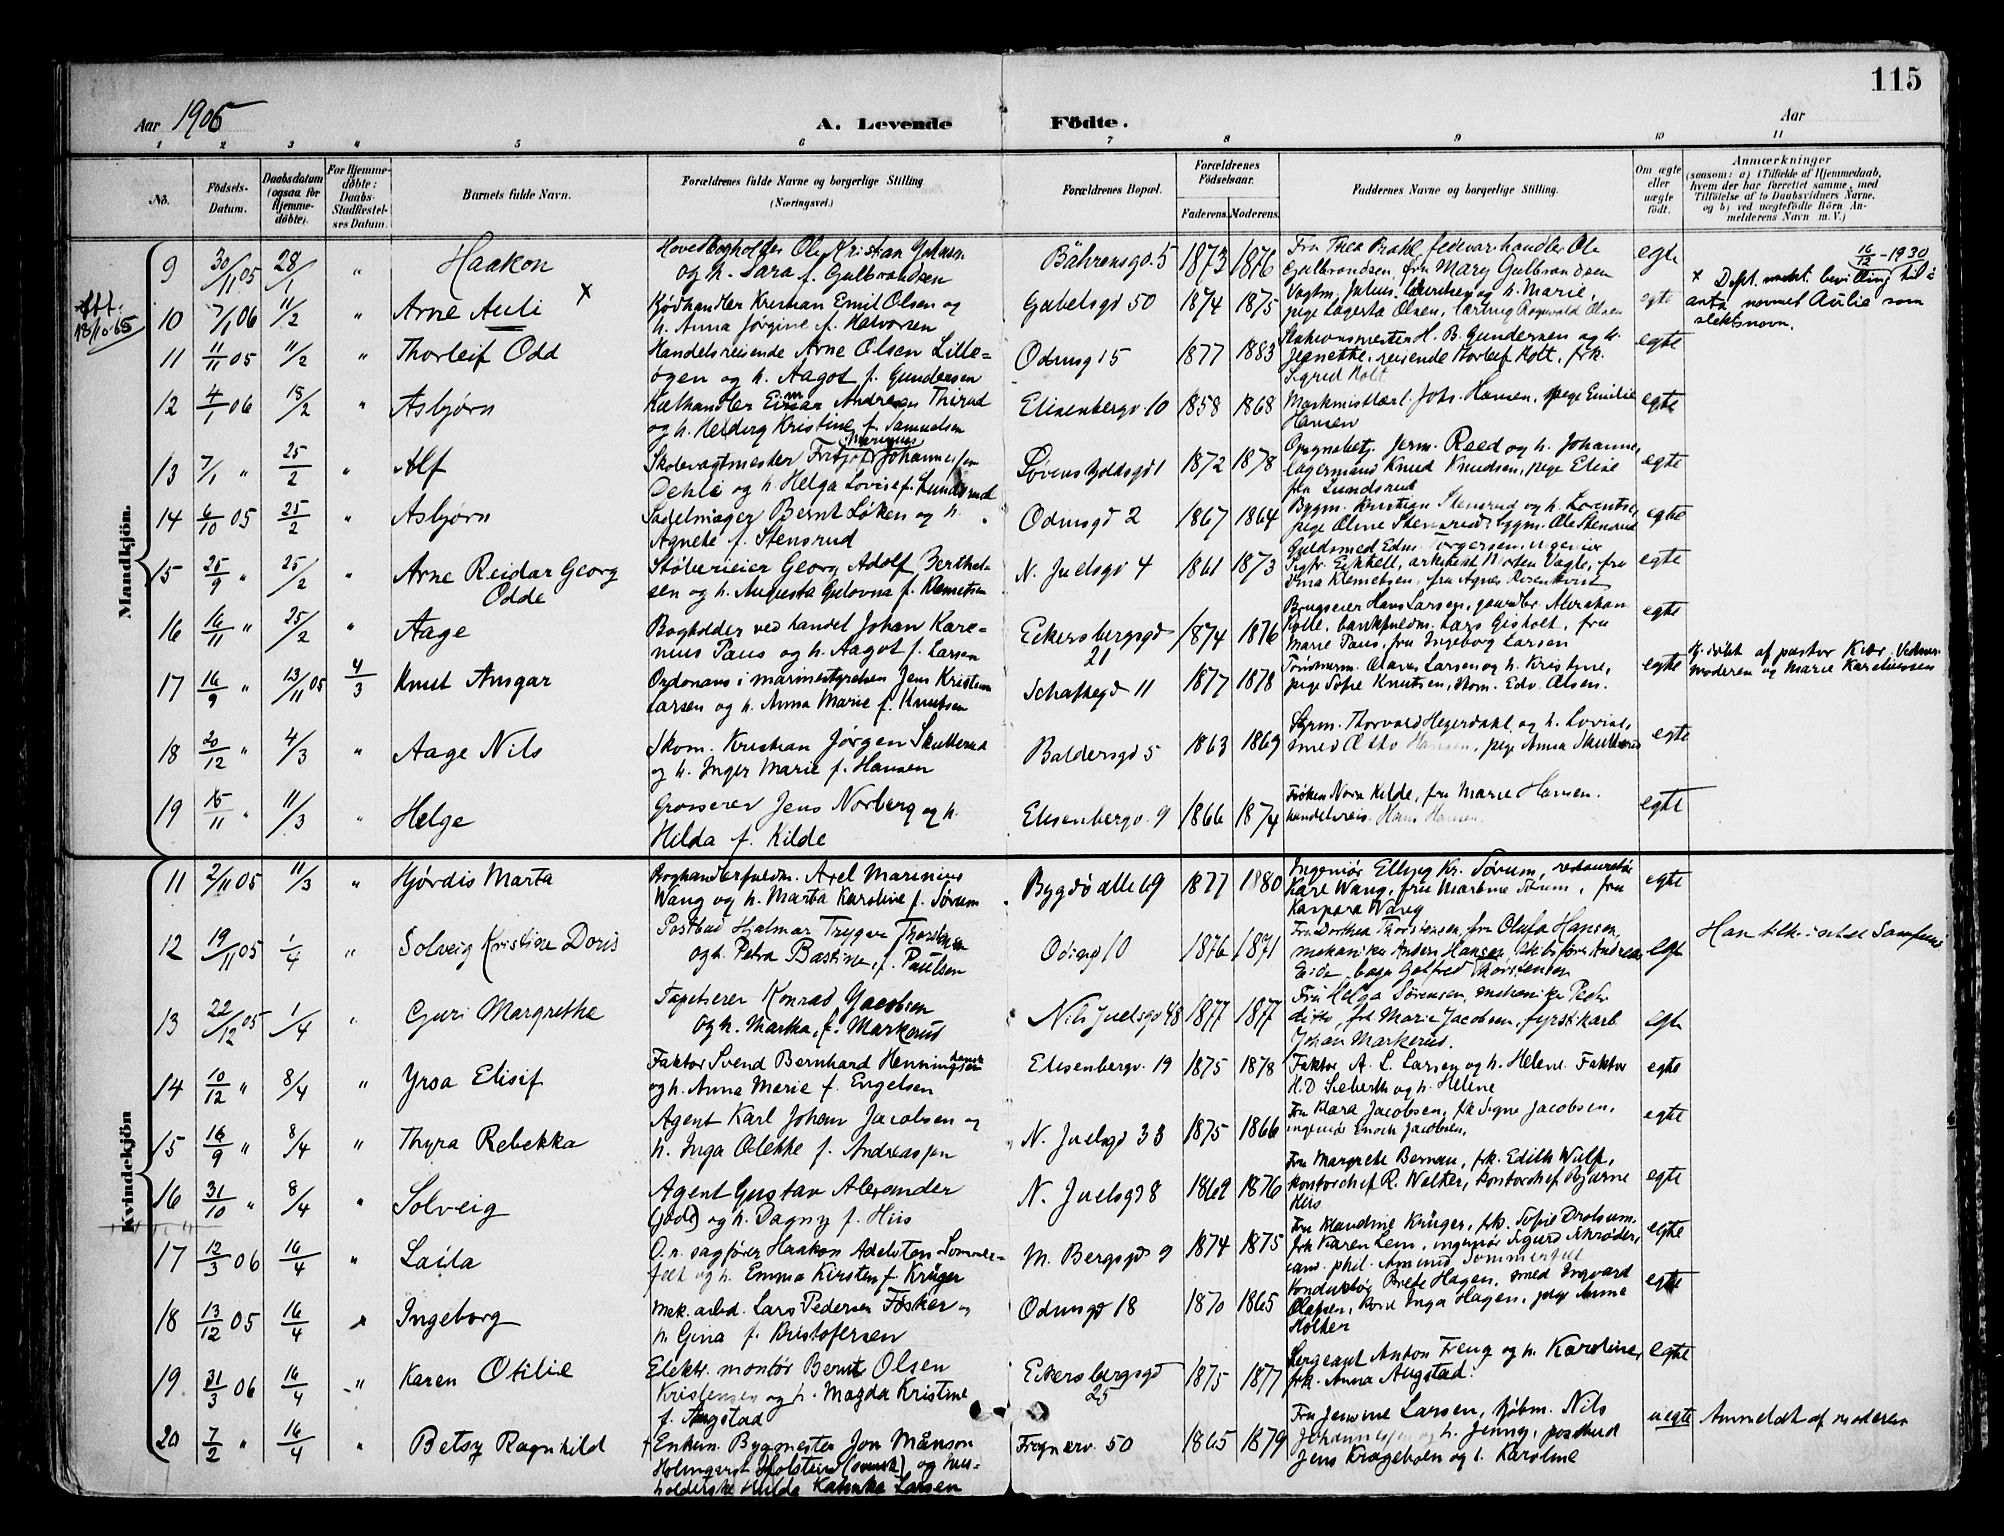 115
Aar 1906 A. Levende Fødte. Aar
1 2 3 4 5 6 7 8 9 10 11
No. Fødsels-Datum. Daabsdatum (ogsaa for Hjemmedøbte). For Hjemmedøbte: Daabs-Stadfæstelses Datum. Barnets fulde Navn. Forældrenes fulde Navne og borgerlige Stilling (Næringsvei.) Forældrenes Bopæl. Forældrenes Fødselsaar. Faderens. Moderens. Faddernes Navne og borgerlige Stilling. Om ægte eller uægte født. Anmærkninger (saasom: a) i Tilfælde af Hjemmedaab, hvem der har forrettet samme, med Tilføielse af to Daabsvidners Navne, og b) ved uægtefødte Børn Anmelderens Navn m. V.)
Mandkjøn.
9 30/11 05 28/1 " Haakon Hovedbogholder Ole Kristian Johnsen
og h. Sara f. Gulbrandsen Båhrensgd. 5 1873 1876 Fru Thea Brahl, fedevarehandler Ole
Gulbrandsen, fru Mary Gulbrandsen egte
Att. 13/10 65
10 7/1 06 11/2 " Arne Auli x Kjødhandler Kristian Emil Olsen og
h. Anna Jørgine f. Halvorsen Gabelsgd 50 1874 1875 Vagtm. Julius Lauritsen og h. Marie,
pige Lagerta Olsen, lærling Ragnvald Olsen egte
16/12 - 1930
x Dept. medt. bevilling til å
anta navnet Aulie som
slektsnavn.
11 11/11 05 11/2 " Thorleif Odd Handelsreisende Arne Olsen Lille=
øgen og h. Aagot f. Gundersen Odinsgd 5 1877 1883 Stationsmester H. B. Gundersen og h.
Jeanette, reisende Thorleif Holt, frk.
Sigrid Holt egte
12 4/1 06 18/2 " Asbjørn Kulhandler Einar Andreas Thirud
og h. Hedvig Kristine f. Samuelsen Elisenbergv. 10 1858 1868 Johs. Hansen, pige Emilie
Hansen egte
13 7/1 " 25/2 " Alf Skolevagtmester Fritjof Marinius Johannessen
Dehli og h. Helga Lovise f. Lundsrud Løvenskjoldsgd 1 1872 1878 Opsynsbetj. Jerm. Reed og h. Johanne,
lagermand Knud Knudsen, pige Elise
Lundsrud egte
14 6/10 05 25/2 " Asbjørn Sadelmager Bernt Løken og h.
Agnete f. Stensrud Odinsgd 2 1867 1864 Bygm. Kristian Stensrud og h. Lorentse,
pige Oline Stensrud, bygm. Ole Stensrud egte
15 25/9 " 25/2 " Arne Reidar Georg
Odde Støberieier Georg Adolf Berthel-
sen og h. Augusta Gulovna f. Klemetsen N. Juelsgd 4 1861 1873 Guldsmed Edm. Torgersen, ingeniør
Sigfr. Eckhell, arkitekt Morten Vagle, fru
Dina Klemetsen, fru Agnes Rosenkvist egte
16 16/11 " 25/2 " Aage Bogholder ved handel Johan Kare=
nius Paus og h. Aagot f. Larsen Eckersbergsgd
21 1874 1876 Brugseier Hans Larsen, gaardbr. Abraham
Holle, bankfuldm. Lars Gisholt, fru
Marie Paus, fru Ingeborg Larsen egte
17 16/9 " 13/11 05 4/3 Knut Ansgar Ordonans i marinestyrelsen Jens Kristian
Larsen og h. Anna Marie f. Knutsen Schafftegd 11 1877 1878 Tømmerm. Olaves Larsen og h. Kristine,
pige Sofie Knutsen, Edv. Olsen. egte Hj. døbt af pastor Kiær. Vidner
moderen og Marie Karelinssen
18 20/12 " 4/3 " Aage Nils Skom. Kristian Jørgen Skullerud
og h. Inger Marie f. Hansen Baldersgd 5 1863 1869 Styrm. Thorvald Hegerdahl og h. Lovise,
smed Otto Hansen, pige Anna Skullerud egte
19 15/11 " 11/3 " Helge Grosserer Jens Norberg og h.
Hilda f. Kilde Elisenbergv. 9 1866 1874 Frøken Nora Kilde, fru Marie Hansen.
handelsreis. Hans Hansen. egte
Kvindekjøn
11 2/11 05 11/3 " Hjørdis Marta Boghandlerfuldm. Axel Marinius
Wang og h. Marta Karoline f. Sørum Bygdø alle 69 1877 1880 Ingeniør Elling Kr. Sørum, restauratør
Karl Wang, fru Martine Sørum, fru
Kaspara Wang egte
12 19/11 05 1/4 " Solveig Kristine Doris Postbud Hjalmar Trygve Thorstensen
og h. Petra Bastine, f. Paulsen Odinsg 10 1876 1871 Fru Dorthea Thorstensen, fru Olufa Hansen,
mekaniker Anders Hansen, skibsfører Andreas
Eide, bager Golfred Thorstensen egte
13 22/12 05 1/4 " Guri Margrethe Tapetserer Konrad Jacobsen
og h. Martha, f. Markerud Nils Juelsgd 48 1877 1877 Fru Helga Sørensen, mekaniker Peder
ditto, frk Marie Jacobsen, fyrstikarb.
Johan Markerud. egte
14 10/12 " 8/4 " Yrsa Elisif Faktor Svend Bernhard Henningsen
og h. Anna Marie f. Engelsen Elisenbergv. 19 1875 1878 Faktor A. L. Larsen og h. Helene. Faktor
H. D Sieberth og h. Helene egte
15 16/9 " 8/4 " Thyra Rebekka Agent Karl Johan Jacobsen og
h. Inga Odekke f. Andreassen N. Juelsgd 33 1875 1866 Fru Klara Jacobsen, frk Signe Jacobsen,
ingeniør Enoch Jacobsen. egte
16 31/10 " 8/4 " Solveig Agent Gustav Alexander
(jøde) og h. Dagny f. Hiis N. Juelsgd 8 1869 1876 Fru Margrete Bernau, frk. Edith Wulf,
kontorchef R. Walter, kontorchef Bjarne
Hiis egte
17 12/3 06 16/4 " Laila O. r. sagfører Haakon Adelsten Sommer=
felt og h. Emma Kirsten f. Krüger M. Bergsgd 9 1874 1875 Fru Klaudine Krüger, frk. Sofie Drolsum,
frk Karen Lem, ingeniør Sigurd Schrøder,
cand. phil. Amund Sommerfelt egte
18 13/12 05 16/4 " Ingeborg Mek. arbd. Lars Pedersen Fosker og
h. Gina f. Kristofersen Odinsgd 18 1870 1865 Konduktør Brede Hagen, smed Ingvard
Olafsen, Inga Hagen, pige Anne
Holter egte
19 31/3 06 16/4 " Karen Otilie Elektr. montør Bernt Olsen
Kristensen og h. Magda Kristine
f. Augstad Eckersbergsgd
25 1875 1877 Sergeant Anton Freng og h. Karoline,
frk. Anna Augstad. egte
20 7/2 " 16/4 " Betsy Ragnhild Enkem. Bygmester Jon Månson
Holmqvist Holstens (svensk) og hus-
holderske Hilda Kathinka Larsen Frognerv. 50 1865 1879 Fru Jensine Larsen, kjøbm. Nils
Johannessen og h. Jenny, postbud
Jens Krageboen og h. Karoline uegte Anmeldt af moderen